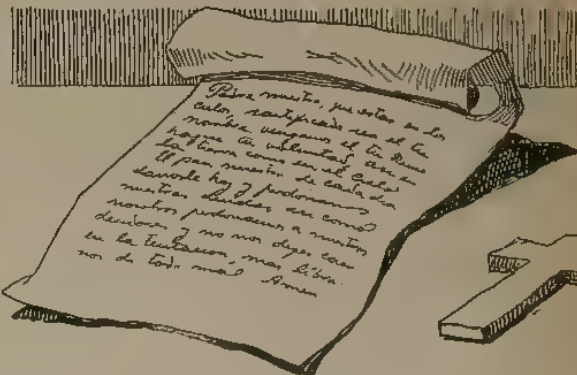 Padre nuestro, que estas en los
cielos, santificado sea el tu
nombre venganos el tu Reino
hagase tu voluntad asi en
la tierra como en el Cielo
El pan nuestro de cada dia
danosle hoy y perdonanos
nuestras deudas asi como
nosotros perdonamos a nuestros
deudores y no nos dejes caer
en la tentacion, mas libra-
nos de todo mal Amen